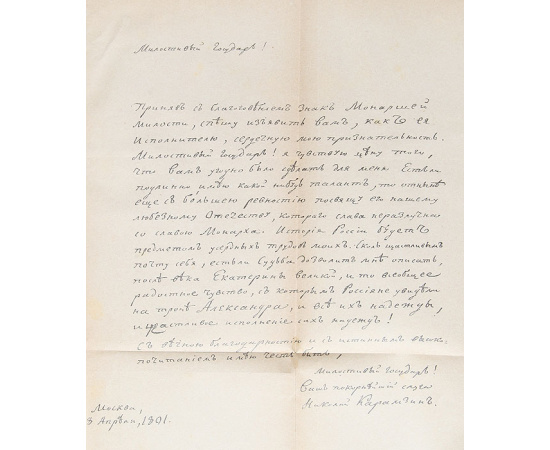 Милостивый Государь!
Принявъ съ благоговѣніемъ знакъ Монаршей
милости, спѣшу изъявить вамъ, какъ ея
исполнителю, сердечную мою признательность.
Милостивый Государь! я чувствую цѣну того,
что вамъ угодно было сдѣлать для меня. Естьли
подлинно имѣю какой нибудь талантъ, то отнынѣ
еще съ большею ревностію посвящу его нашему
любезному Отечеству, котораго слава неразлучна
со славою Монарха. Исторія Россіи будетъ
предметомъ усердныхъ трудовъ моихъ. Сколь щастливымъ
почту себя, естьли Судьба дозволитъ мнѣ описать,
послѣ вѣка Екатерины великой, и то всеобщее
радостное чувство, съ которымъ Россіяне увидѣли
на тронѣ Александра, и всѣ ихъ надежды,
и щастливое исполненіе сихъ надеждъ!
Съ вѣчною благодарностію и съ истиннымъ высоко-
почитаніемъ имѣю честь быть,
Милостивый Государь!
Вашъ покорнѣйшій слуга
Николай Карамзинъ.
Москва,
3 Апрѣля, 1801.